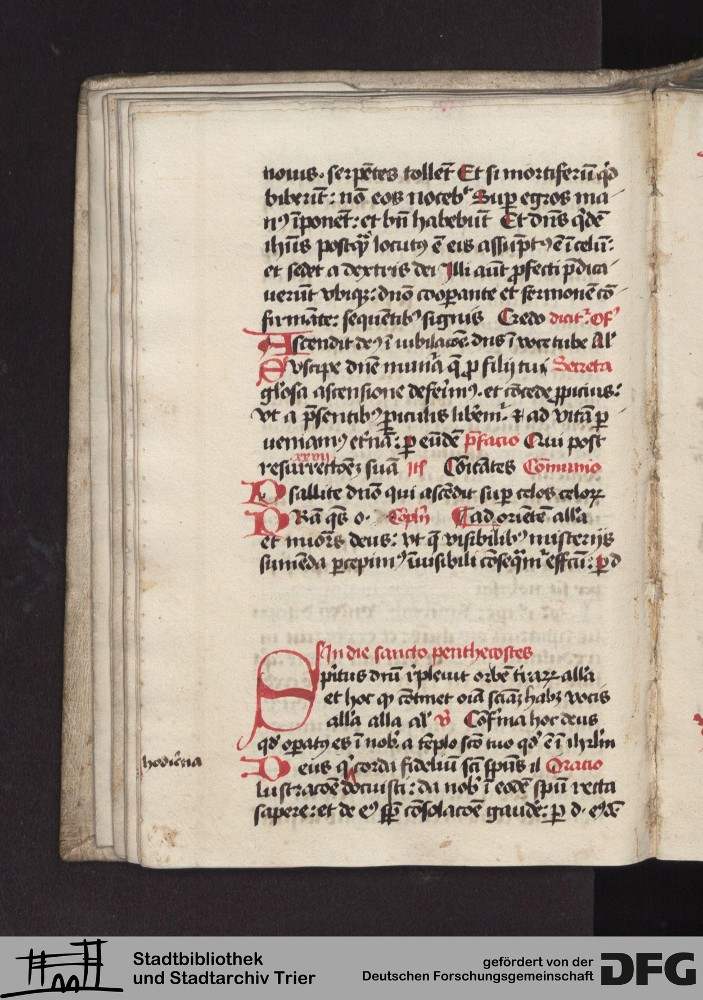 nouis. serpētes tollēt Et si mortiferū qd
biberīt: nō eos nocebt Sup egros ma
nꝰ īponēt: et bn̄ habebūt Et dn̄s qdē
ihūs postqꝫ locutꝰ ē eis assūptꝰ ē ī celū:
et sedet a dextris dei Illi aūt ꝓfecti p̄dica
uerūt vbiqꝫ: dnō cooꝑante et sermonē cō
firmāte: sequentibꝰ signis Credo dicitr Off
Ascendit deꝰ ī iubilacōe: dns ī voce tube Al'
Suscipe dnē mun̄a q̄ ꝓ filij tui Secreta
gl'osa ascensione deferimꝰ. et cōcede ꝓpicius:
vt a p̄sentibꝰ ꝑiculis liberem᷑. ⁊ ad vitā ꝑ
ueniamꝰ et'nā: ꝑ eūdē p̄facio Qui post
xxvij
resurrectōeꝫ suā Itē Cōicātes Cōmunio
Psallite dnō qui ascēdit sup celos celoꝝ
PRa qs̄ o. Cōpln̄ ad oriētē all'a
et mi'ors deus: vt q̄ visibilibꝰ misterijs
sumēda ꝑcepimꝰ īuisibili cōseqm᷑ effcū: ꝑ d
In die sancto penthecostes
Spiritus dnī r̄pleuit orbē t'raꝝ all'a
et hoc qꝫ cōtinet oīa sciaꝫ habꝫ vocis
all'a alla al' V̄ Cōfirma hoc deus
qd' oꝑatꝰ es ī nob' a tēplo scō tuo qd' ē ī ihrl'm
hodi'na
Deus q corda fideliū sc̄i sp̄us il Oracio
lustracōe docuisti: da nob' ī eodē sp̄u recta
sapere: et de eꝰ sp̄ cōsolacōe gaude': ꝑ d. eꝰdē
Stadtbibliothek
und Stadtarchiv Trier
gefördert von der
Deutschen Forschungsgemeinschaft
DFG